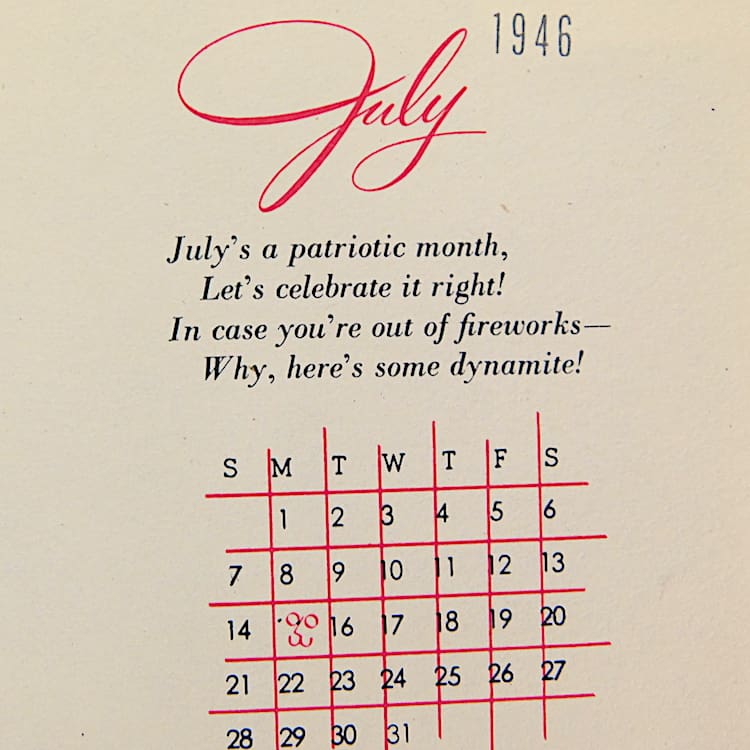 July 1946
July's a patriotic month,
Let's celebrate it right!
In case you're out of fireworks—
Why, here's some dynamite!
S M T W T F S
1 2 3 4 5 6
7 8 9 10 11 12 13
14 16 17 18 19 20
21 22 23 24 25 26 27
28 29 30 31